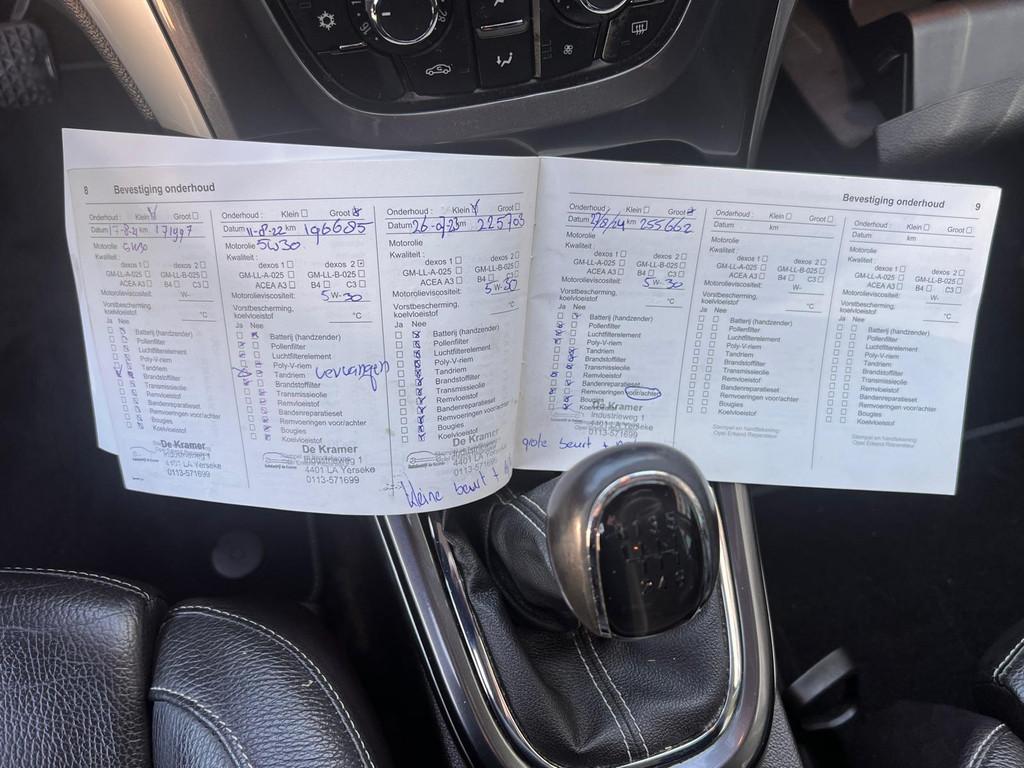 8 Bevestiging onderhoud
Onderhoud : Klein Groot
Datum 7-8-21 km 171997
Motorolie
Kwaliteit :
dexos 1 dexos 2
GM-LL-A-025 GM-LL-B-025
ACEA A3 B4 C3
Motorolieviscositeit: W-
Vorstbescherming, koelvloeistof °C
Ja Nee
Batterij (handzender)
Pollenfilter
Luchtfilterelement
Poly-V-riem
Tandriem
Brandstoffilter
Transmissieolie
Remvloeistof
Bandenreparatieset
Remvoeringen voor/achter
Bougies
Koelvloeistof
De Kramer
Industrieweg 1
4401 LA Yerseke
0113-571699
Onderhoud : Klein Groot
Datum 11-8-22 km 196685
Motorolie 5W30
Kwaliteit :
dexos 1 dexos 2
GM-LL-A-025 GM-LL-B-025
ACEA A3 B4 C3
Motorolieviscositeit: 5 W- 30
Vorstbescherming, koelvloeistof °C
Ja Nee
Batterij (handzender)
Pollenfilter
Luchtfilterelement
Poly-V-riem vervangen
Tandriem
Brandstoffilter
Transmissieolie
Remvloeistof
Bandenreparatieset
Remvoeringen voor/achter
Bougies
Koelvloeistof
De Kramer
Industrieweg 1
4401 LA Yerseke
0113-571699
Onderhoud : Klein Groot
Datum 26-07-23 km 225703
Motorolie
Kwaliteit :
dexos 1 dexos 2
GM-LL-A-025 GM-LL-B-025
ACEA A3 B4 C3
Motorolieviscositeit: 5 W- 30
Vorstbescherming, koelvloeistof °C
Ja Nee
Batterij (handzender)
Pollenfilter
Luchtfilterelement
Poly-V-riem
Tandriem
Brandstoffilter
Transmissieolie
Remvloeistof
Bandenreparatieset
Remvoeringen voor/achter
Bougies
Koelvloeistof
De Kramer
Industrieweg 1
4401 LA Yerseke
0113-571699
kleine beurt +
Bevestiging onderhoud 9
Onderhoud : Klein Groot
Datum 27/8/24 km 255662
Motorolie
Kwaliteit :
dexos 1 dexos 2
GM-LL-A-025 GM-LL-B-025
ACEA A3 B4 C3
Motorolieviscositeit: 5 W- 30
Vorstbescherming, koelvloeistof °C
Ja Nee
Batterij (handzender)
Pollenfilter
Luchtfilterelement
Poly-V-riem
Tandriem
Brandstoffilter
Transmissieolie
Remvloeistof
Bandenreparatieset
Remvoeringen voor/achter
Bougies
De Kramer
Industrieweg 1
4401 LA Yerseke
0113-571699
grote beurt +
Onderhoud : Klein Groot
Datum km
Motorolie
Kwaliteit :
dexos 1 dexos 2
GM-LL-A-025 GM-LL-B-025
ACEA A3 B4 C3
Motorolieviscositeit: W-
Vorstbescherming, koelvloeistof °C
Ja Nee
Batterij (handzender)
Pollenfilter
Luchtfilterelement
Poly-V-riem
Tandriem
Brandstoffilter
Transmissieolie
Remvloeistof
Bandenreparatieset
Remvoeringen voor/achter
Bougies
Koelvloeistof
Stempel en handtekening
Opel Erkend Reparateur
Onderhoud : Klein Groot
Datum km
Motorolie
Kwaliteit :
dexos 1 dexos 2
GM-LL-A-025 GM-LL-B-025
ACEA A3 B4 C3
Motorolieviscositeit: W-
Vorstbescherming, koelvloeistof °C
Ja Nee
Batterij (handzender)
Pollenfilter
Luchtfilterelement
Poly-V-riem
Tandriem
Brandstoffilter
Transmissieolie
Remvloeistof
Bandenreparatieset
Remvoeringen voor/achter
Bougies
Koelvloeistof
Stempel en handtekening
Opel Erkend Reparateur